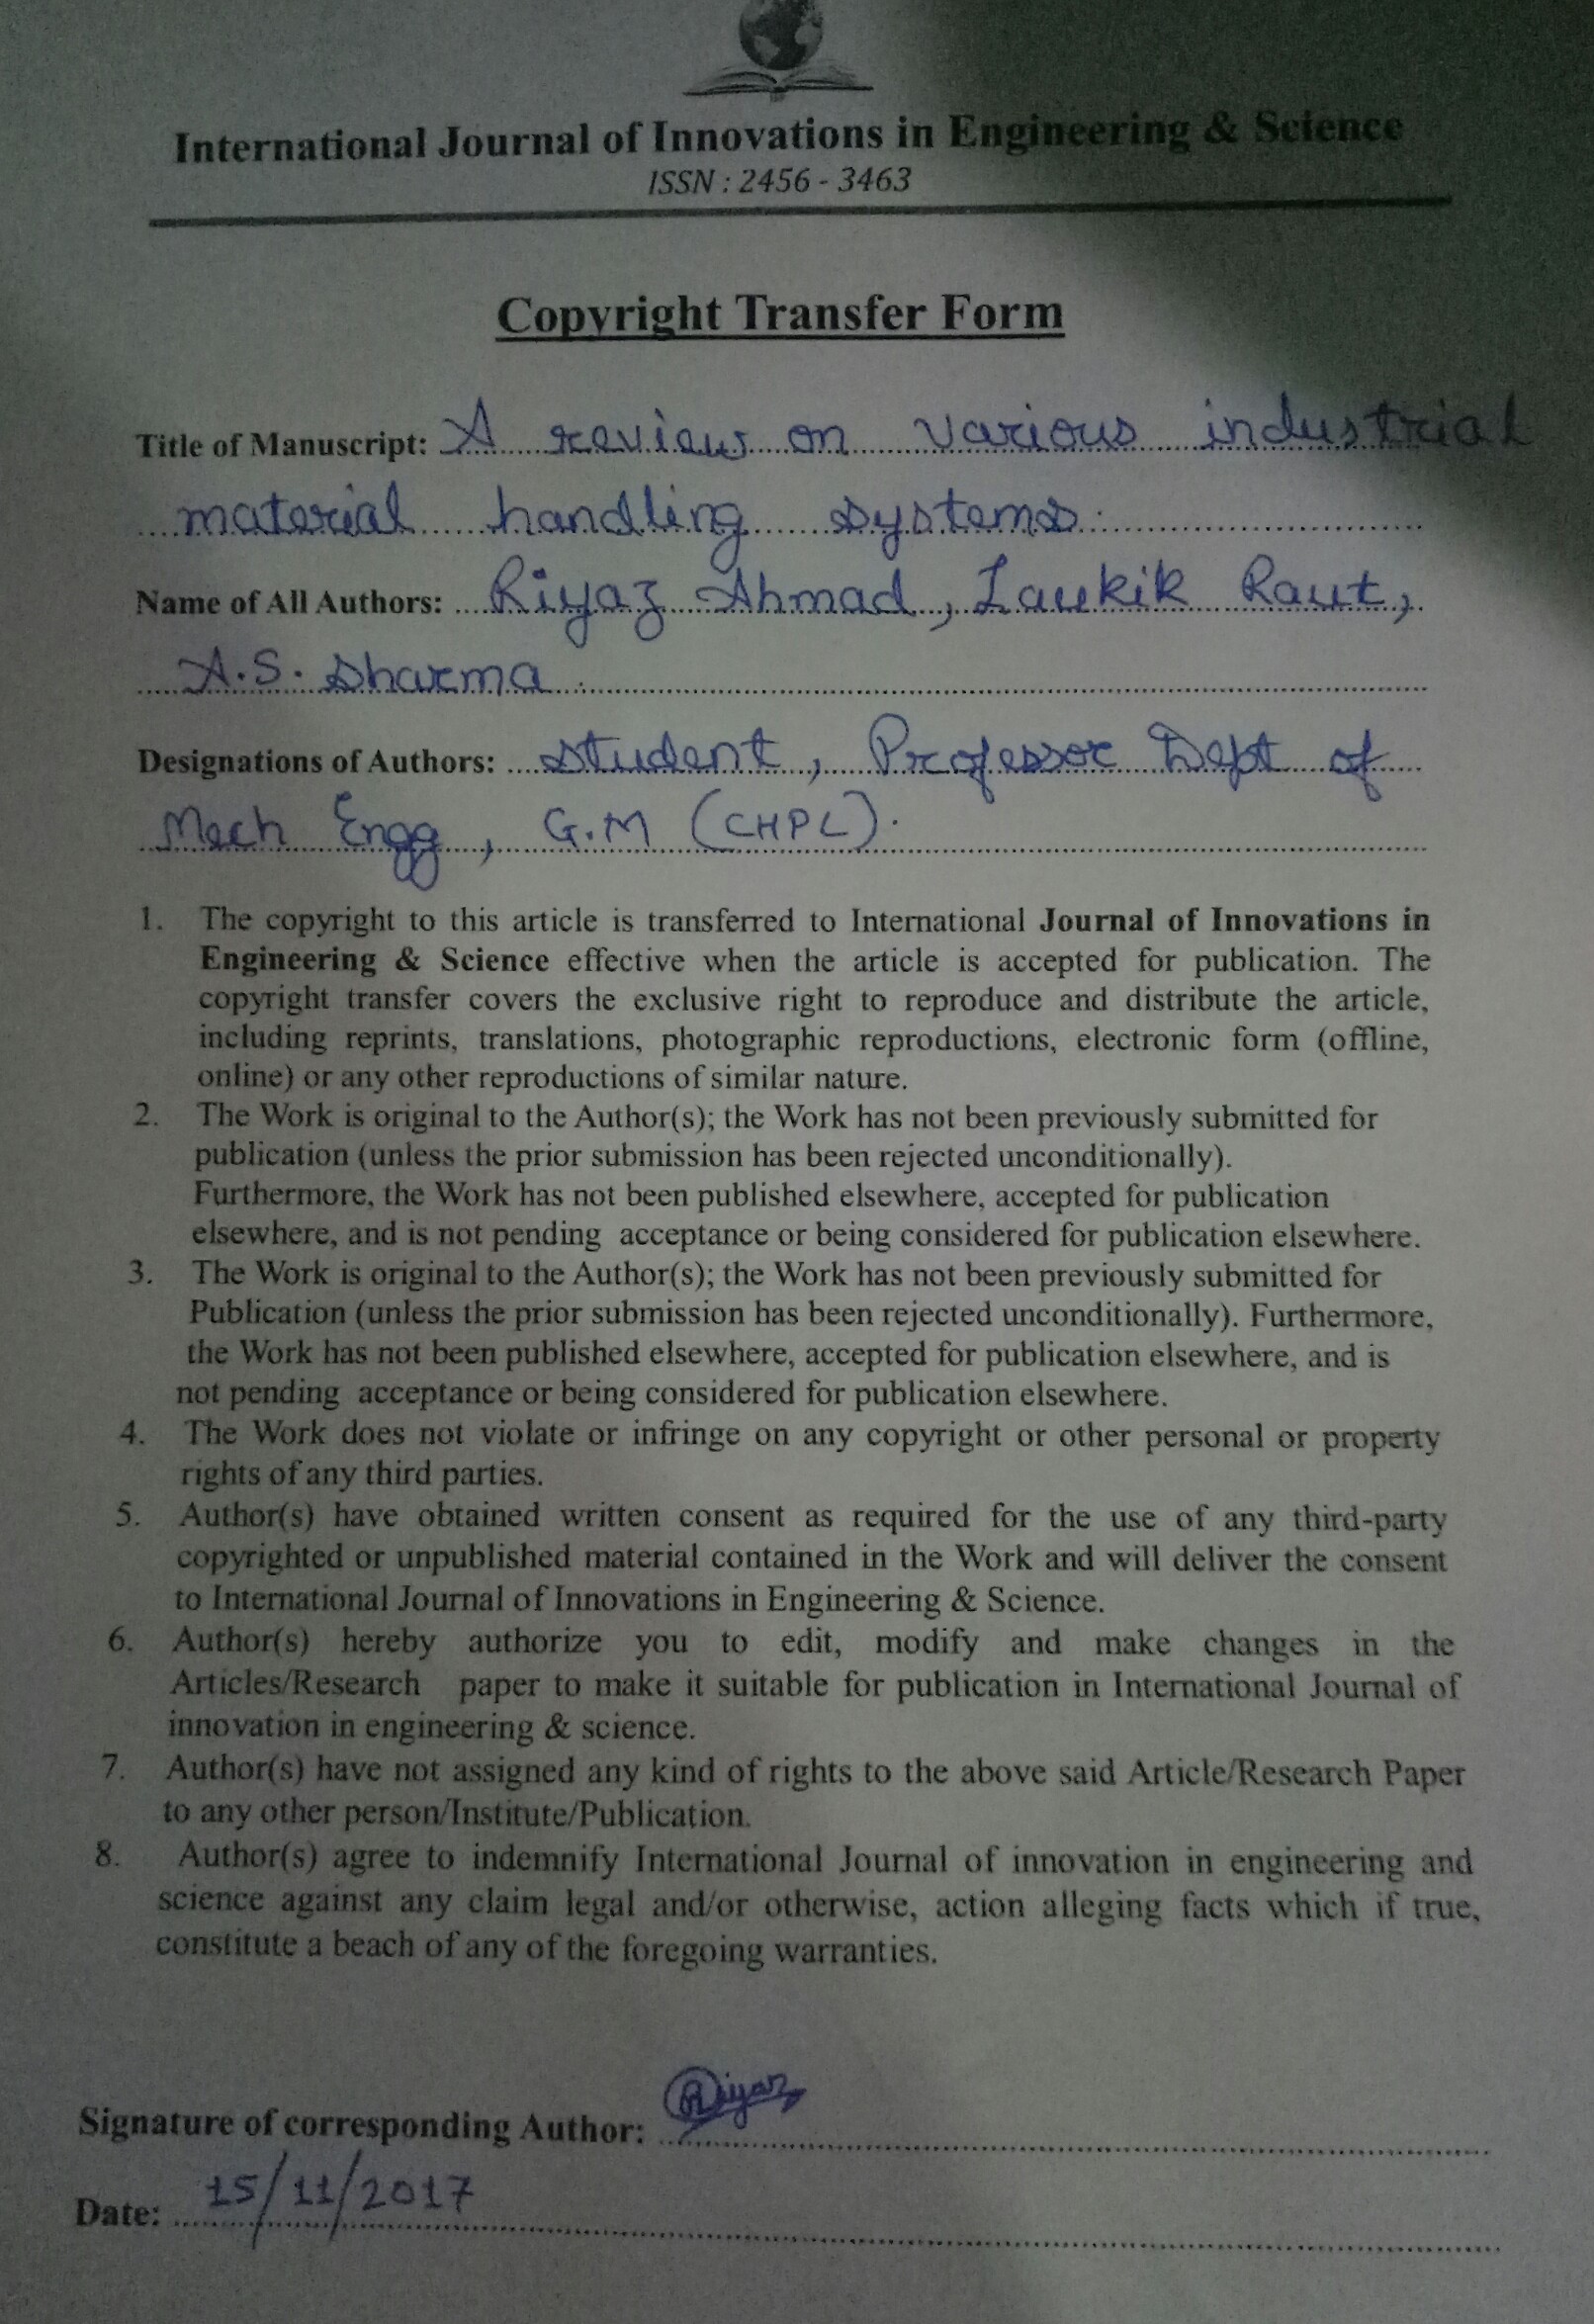 International Journal of Innovations in Engineering & Science
ISSN : 2456 - 3463
Copyright Transfer Form
Title of Manuscript: A review on various industrial
material handling systems.
Name of All Authors: Riyaz Ahmad, Laukik Raut,
A.S. Sharma
Designations of Authors: Student, Professor Dept of
Mech Engg, G.M (CHPL).
1. The copyright to this article is transferred to International Journal of Innovations in
Engineering & Science effective when the article is accepted for publication. The
copyright transfer covers the exclusive right to reproduce and distribute the article,
including reprints, translations, photographic reproductions, electronic form (offline,
online) or any other reproductions of similar nature.
2. The Work is original to the Author(s); the Work has not been previously submitted for
publication (unless the prior submission has been rejected unconditionally).
Furthermore, the Work has not been published elsewhere, accepted for publication
elsewhere, and is not pending acceptance or being considered for publication elsewhere.
3. The Work is original to the Author(s); the Work has not been previously submitted for
Publication (unless the prior submission has been rejected unconditionally). Furthermore,
the Work has not been published elsewhere, accepted for publication elsewhere, and is
not pending acceptance or being considered for publication elsewhere.
4. The Work does not violate or infringe on any copyright or other personal or property
rights of any third parties.
5. Author(s) have obtained written consent as required for the use of any third-party
copyrighted or unpublished material contained in the Work and will deliver the consent
to International Journal of Innovations in Engineering & Science.
6. Author(s) hereby authorize you to edit, modify and make changes in the
Articles/Research paper to make it suitable for publication in International Journal of
innovation in engineering & science.
7. Author(s) have not assigned any kind of rights to the above said Article/Research Paper
to any other person/Institute/Publication.
8. Author(s) agree to indemnify International Journal of innovation in engineering and
science against any claim legal and/or otherwise, action alleging facts which if true,
constitute a beach of any of the foregoing warranties.
Signature of corresponding Author: Riyaz
Date: 15/11/2017